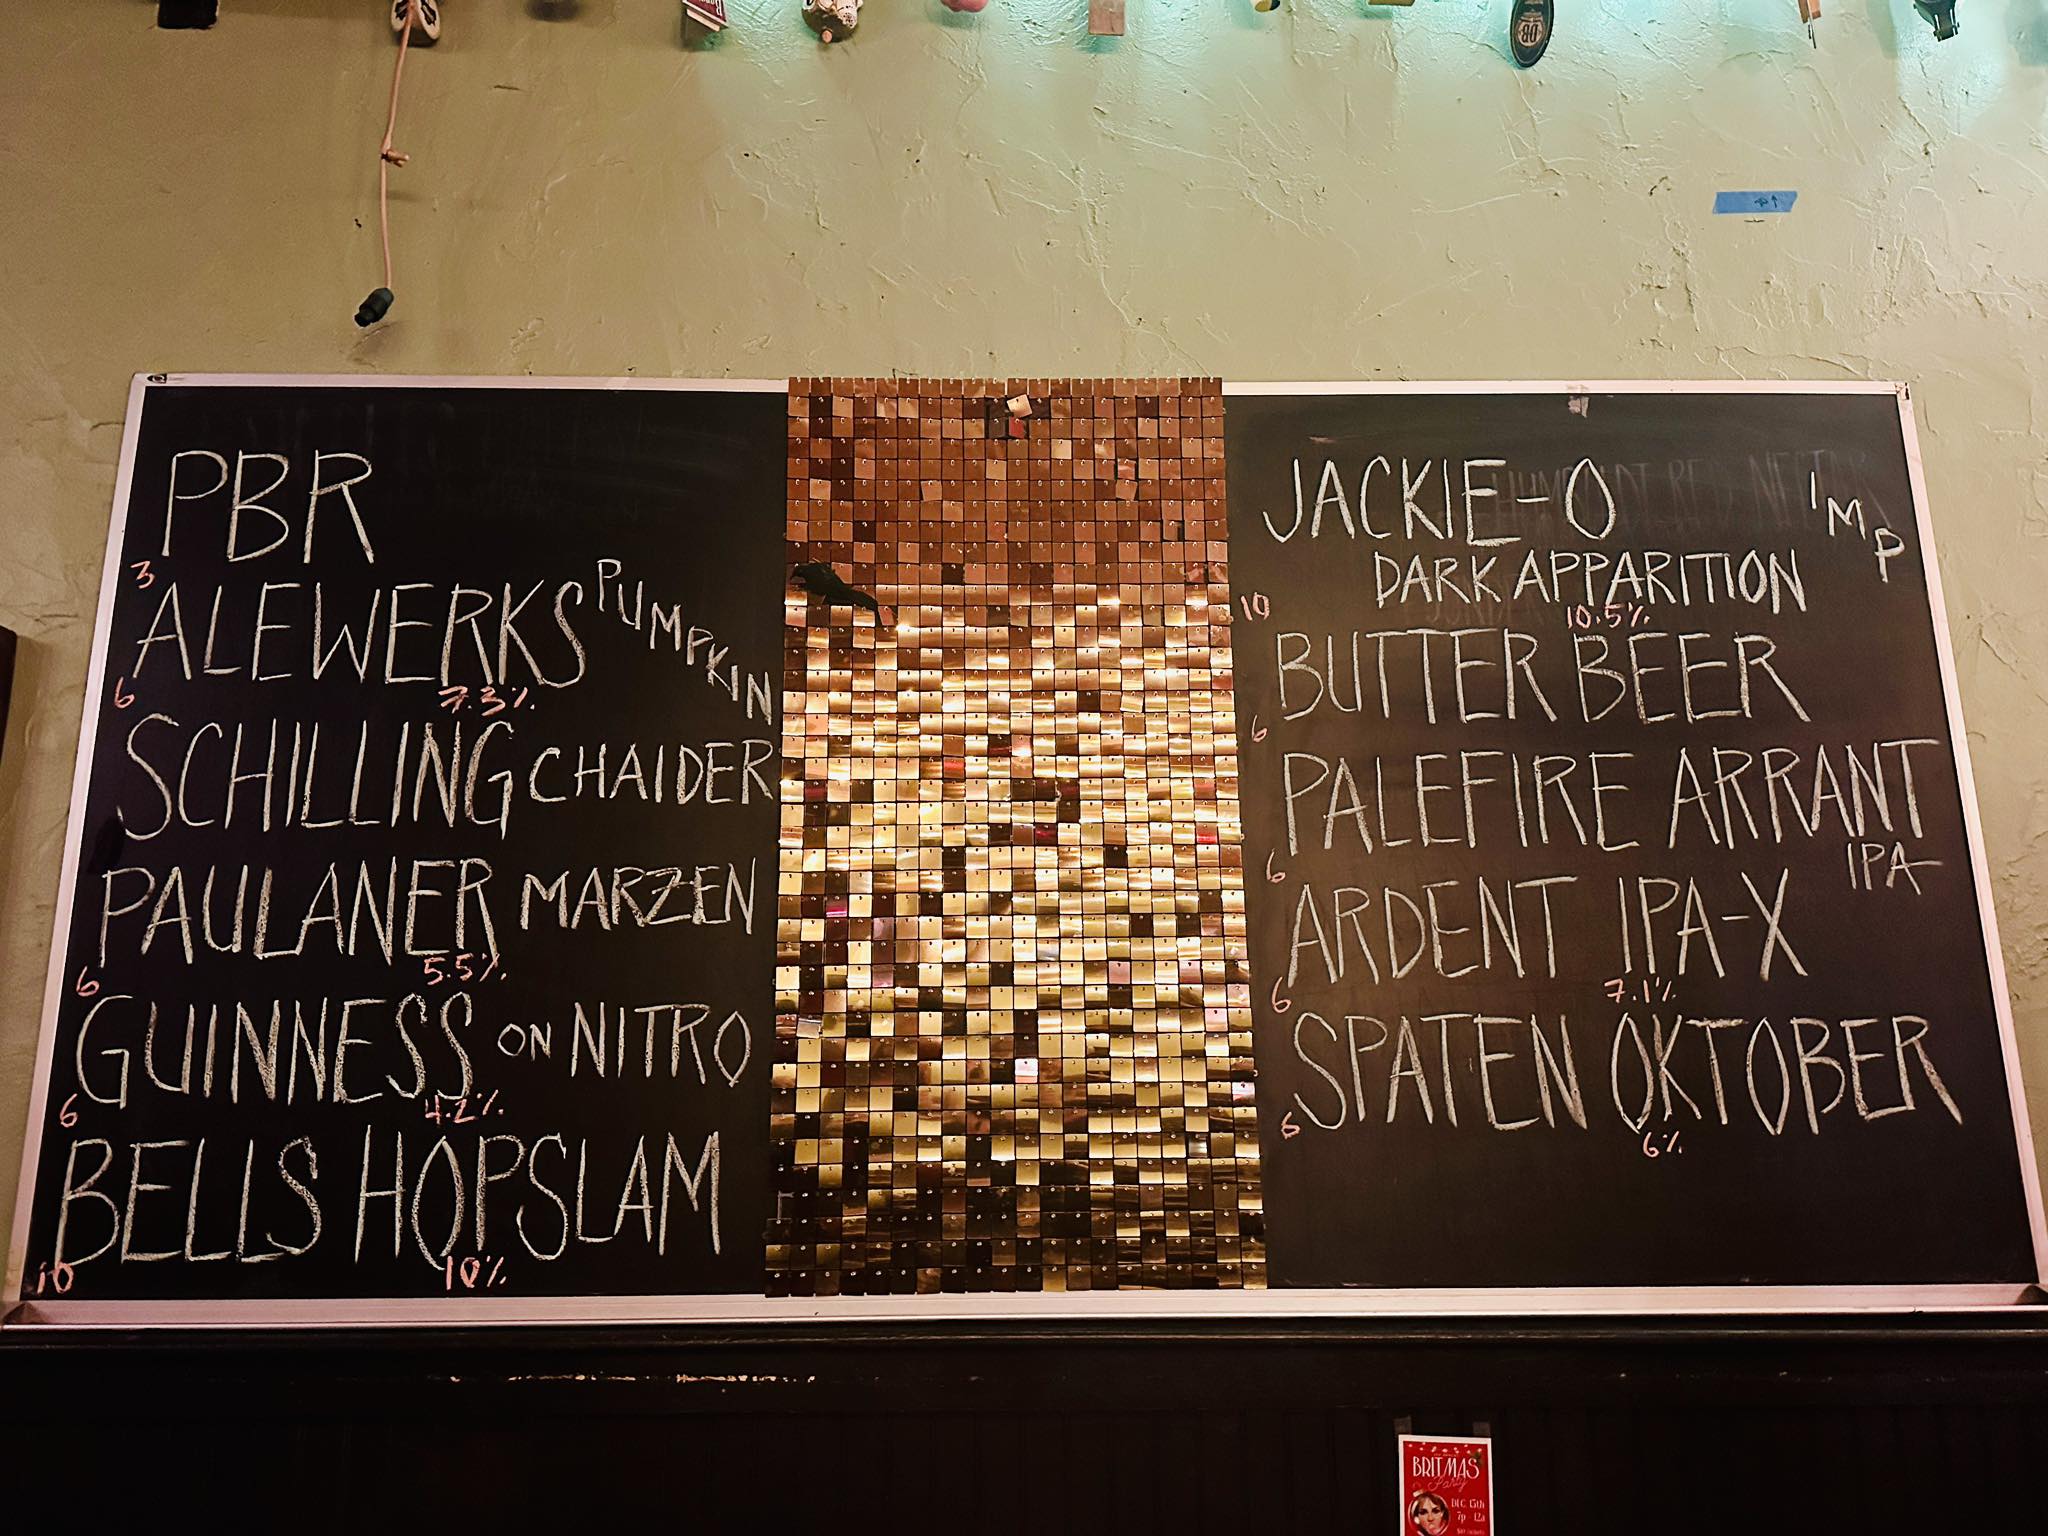 PBR
3
ALEWERKS PUMPKIN
6 7.3%
SCHILLING CHAIDER
PAULANER MARZEN
6 5.5%
GUINNESS ON NITRO
6 4.2%
BELLS HOPSLAM
10 10%
JACKIE-O IMP
DARK APPARITION
10 10.5%
BUTTER BEER
6
PALEFIRE ARRANT
IPA
6
ARDENT IPA-X
6 7.1%
SPATEN OKTOBER
6 6%
DB
BRITMAS
Party
DEC 13th
7p 12a